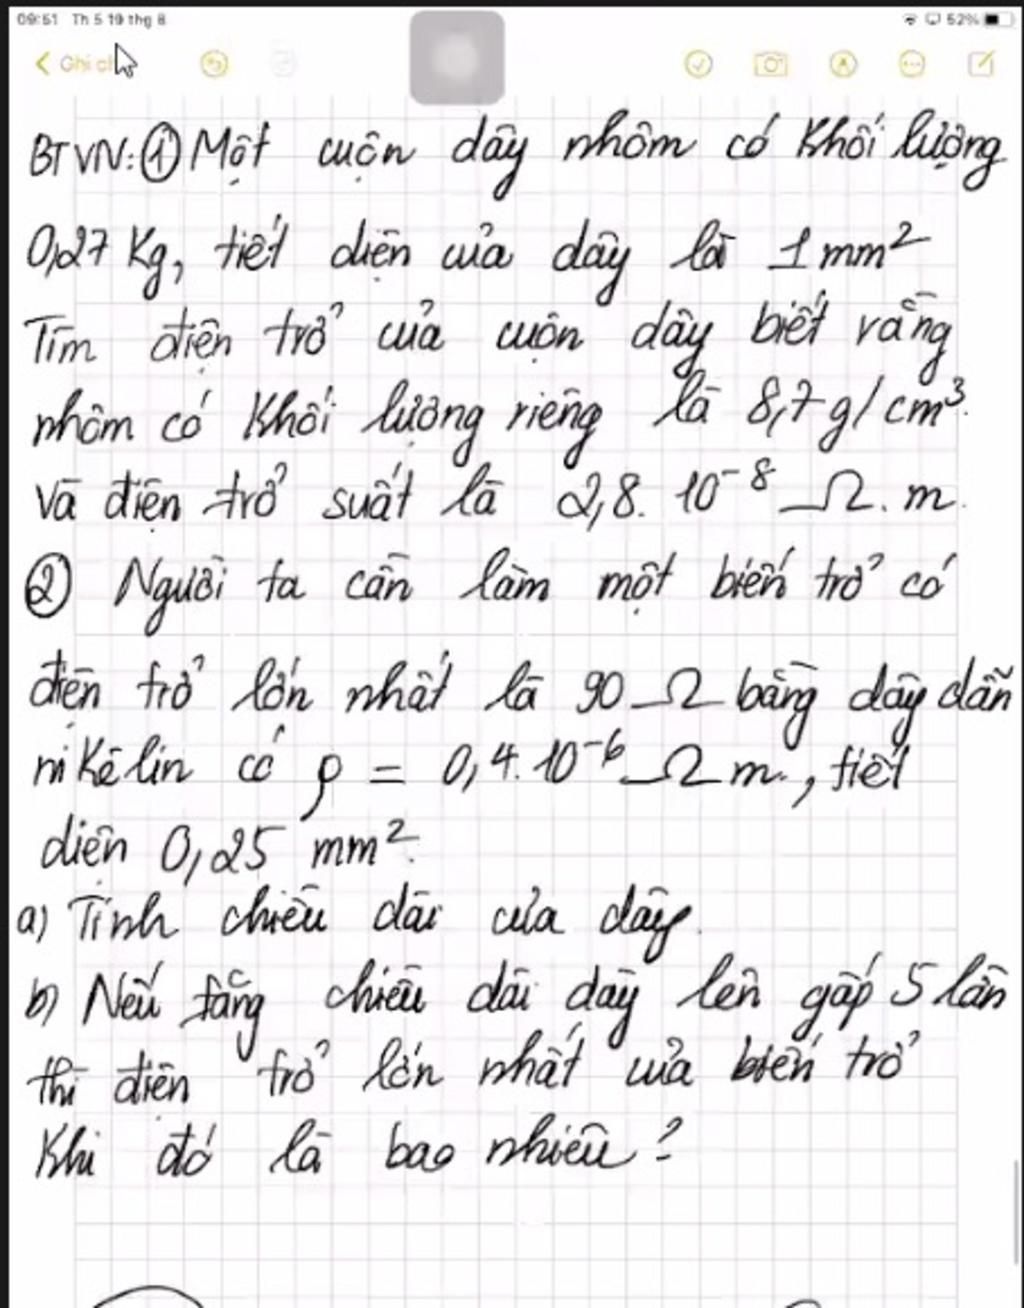 09:51 Th 5 19 thg 8
52%
Ghi ch
BTVN: ① Một cuộn dây nhôm có khối lượng
0,27 Kg, tiết diện của dây là 1 mm²
Tìm điện trở của cuộn dây biết rằng
nhôm có khối lượng riêng là 8,7 g/cm³.
Và điện trở suất là 2,8. 10⁻⁸ Ω. m.
② Người ta cần làm một biến trở có
điện trở lớn nhất là 90 Ω bằng dây dẫn
ni kê lin có ρ = 0,4. 10⁻⁶ Ω m., tiết
diện 0,25 mm².
a) Tính chiều dài của dây.
b) Nếu tăng chiều dài dây lên gấp 5 lần
thì điện trở lớn nhất của biến trở
Khi đó là bao nhiêu?